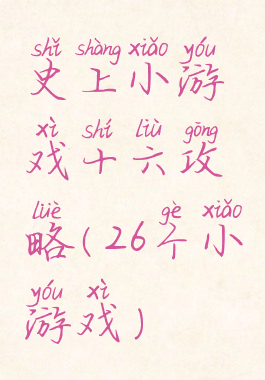 shǐ shàng xiǎo yóu
史上小游
xì shí liù gōng
戏十六攻
lüè gè xiǎo
略(26个小
yóu xì
游戏)